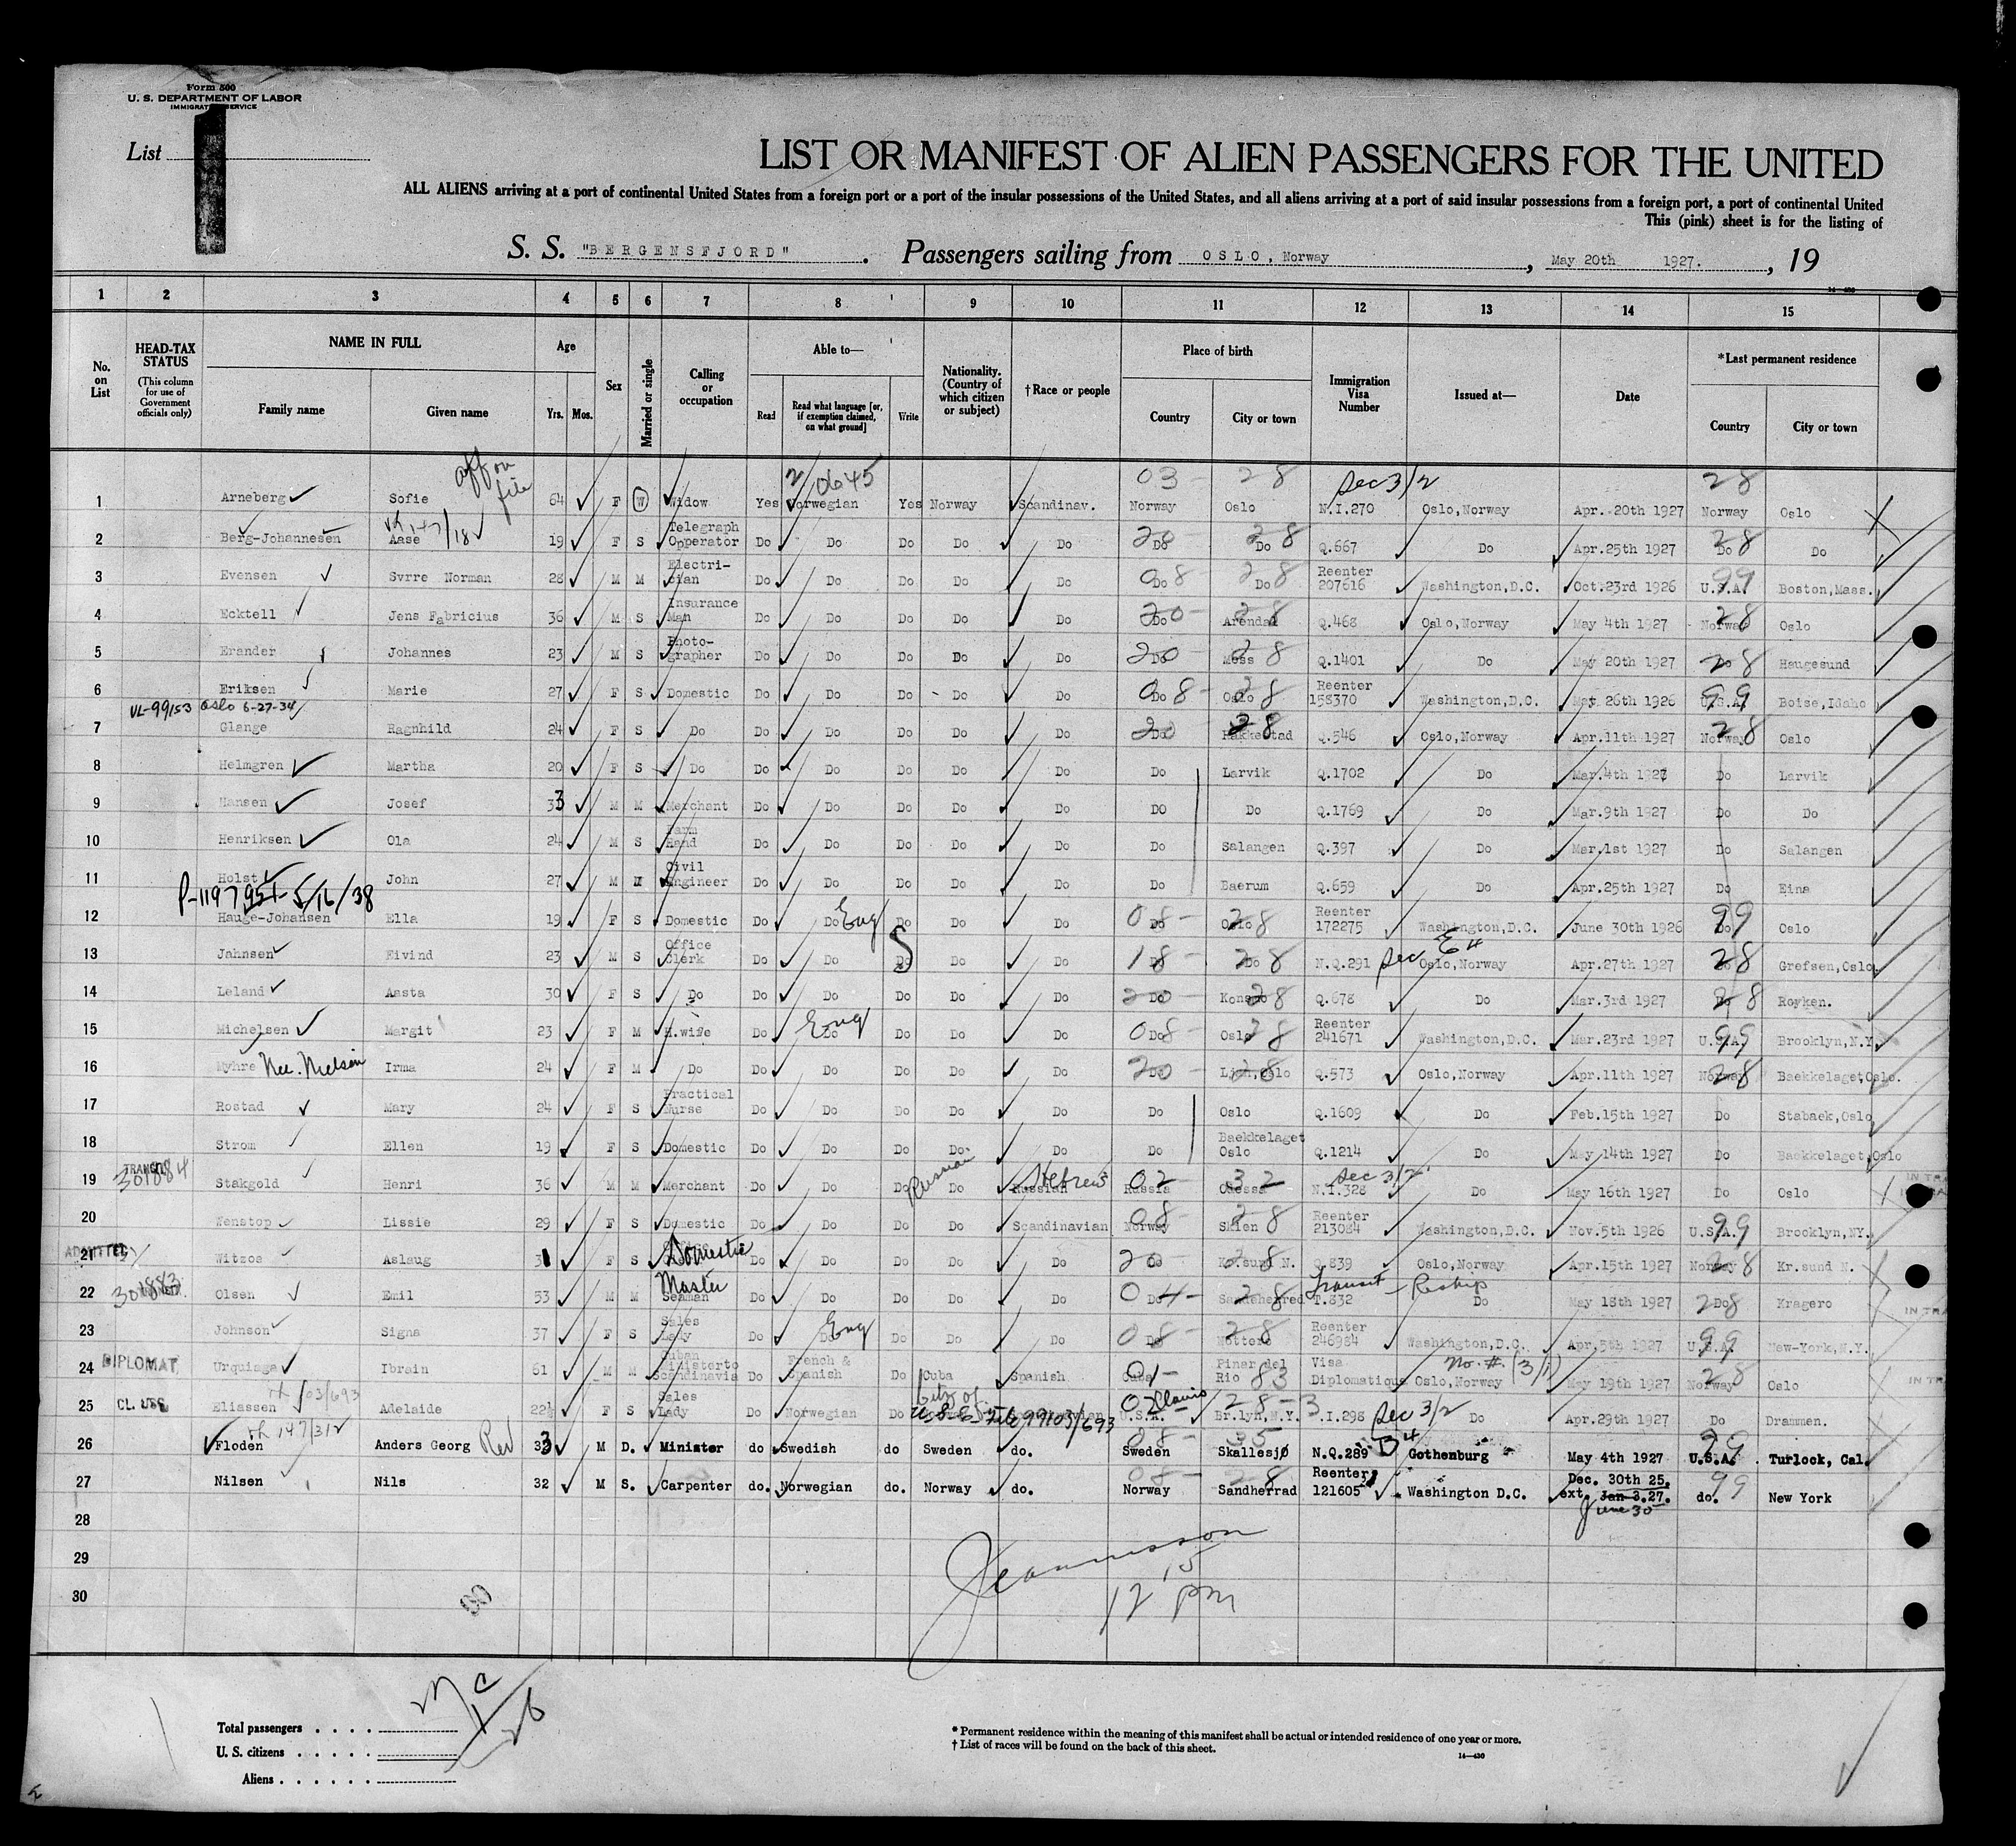 Form 500
U. S. DEPARTMENT OF LABOR
IMMIGRATION SERVICE
List 1
LIST OR MANIFEST OF ALIEN PASSENGERS FOR THE UNITED
ALL ALIENS arriving at a port of continental United States from a foreign port or a port of the insular possessions of the United States, and all aliens arriving at a port of said insular possessions from a foreign port, a port of continental United
This (pink) sheet is for the listing of
S. S. "BERGENSFJORD". Passengers sailing from OSLO, Norway, May 20th 1927., 19
14—430
1 2 3 4 5 6 7 8 9 10 11 12 13 14 15
No. on List
HEAD-TAX STATUS
(This column for use of Government officials only)
NAME IN FULL
Family name Given name
Age
Yrs. Mos.
Sex
Married or single
Calling or occupation
Able to—
Read
Read what language [or, if exemption claimed, on what ground]
Write
Nationality. (Country of which citizen or subject)
† Race or people
Place of birth
Country City or town
Immigration Visa Number
Issued at—
Date
* Last permanent residence
Country City or town
aff on file 2/0645 03 - 28 Sec 3/2 28
1 Arneberg Sofie 64 F W Widow Yes Norwegian Yes Norway Scandinav. Norway Oslo N.I.270 Oslo,Norway Apr. 20th 1927 Norway Oslo
2 Berg-Johannesen Aase 19 F S Telegraph Opperator Do Do Do Do Do Do Do Q.667 Do Apr.25th 1927 Do Do
3 Evensen Svrre Norman 28 M M Electrician Do Do Do Do Do Do Do Reenter 207616 Washington,D.C. Oct.23rd 1926 U.S.A. Boston,Mass.
4 Ecktell Jens Fabricius 36 M S Insurance Man Do Do Do Do Do Do Arendal Q.468 Oslo,Norway May 4th 1927 Norway Oslo
5 Erander Johannes 23 M S Photo-grapher Do Do Do Do Do Do Moss Q.1401 Do May 20th 1927 Do Haugesund
6 Eriksen Marie 27 F S Domestic Do Do Do Do Do Do Oslo Reenter 158370 Washington,D.C. May 26th 1926 U.S.A. Boise,Idaho
VL-99153 Oslo 6-27-34
7 Glange Ragnhild 24 F S Do Do Do Do Do Do Do Rakkestad Q.546 Oslo,Norway Apr.11th 1927 Norway Oslo
8 Helmgren Martha 20 F S Do Do Do Do Do Do Do Larvik Q.1702 Do Mar.4th 1927 Do Larvik
9 Hansen Josef 33 M M Merchant Do Do Do Do Do DO Do Q.1769 Do Mar.9th 1927 Do Do
10 Henriksen Ola 24 M S Farm Hand Do Do Do Do Do Do Salangen Q.397 Do Mar.1st 1927 Do Salangen
11 Holst John 27 M M Civil Engineer Do Do Do Do Do Do Baerum Q.659 Do Apr.25th 1927 Do Eina
P-1197951-5/16/38
12 Hauge-Johansen Ella 19 F S Domestic Do Do Eng Do Do Do Do Oslo Reenter 172275 Washington,D.C. June 30th 1926 Do Oslo
13 Jahnsen Eivind 23 M S Office Clerk Do Do Do Do Do Do Do N.Q.291 Oslo,Norway Apr.27th 1927 Do Grefsen,Oslo
14 Leland Aasta 30 F S Do Do Do Do Do Do Do Q.678 Do Mar.3rd 1927 Do Royken.
15 Michelsen Margit 23 F M H.wife Do Do Eng Do Do Do Do Oslo Reenter 241671 Washington,D.C. Mar.23rd 1927 U.S.A. Brooklyn,N.Y.
16 Myhre Nee. Nielsen Irma 24 F M Do Do Do Do Do Do Do Q.573 Oslo,Norway Apr.11th 1927 Norway Baekkelaget,Oslo.
17 Rostad Mary 24 F S Practical Nurse Do Do Do Do Do Do Oslo Q.1609 Do Feb.15th 1927 Do Stabaek,Oslo
18 Strom Ellen 19 F S Domestic Do Do Do Do Do Do Baekkelaget Oslo Q.1214 Do May 14th 1927 Do Baekkelaget,Oslo
301884
19 Stakgold Henri 36 M M Merchant Do Do Do Russian Do Russian Hebrew Russia Odessa N.I.328 Sec 3/2 Do May 16th 1927 Do Oslo
20 Wenstop Lissie 29 F S Domestic Do Do Do Do Scandinavian Norway Skien Reenter 213084 Washington,D.C. Nov.5th 1926 U.S.A. Brooklyn,NY.
ADMITTED
21 Witzoe Aslaug 31 F S Domestic Do Do Do Do Do Do Kr.sund N. Q.839 Oslo,Norway Apr.15th 1927 Norway Kr.sund N.
301883
22 Olsen Emil 53 M M Master Seaman Do Do Do Do Do Do Sandeherred T.832 Transit - Reship Do May 18th 1927 Do Kragero
23 Johnson Signa 37 F S Sales Lady Do Do Eng Do Do Do Do Reenter 246984 Washington,D.C. Apr.5th 1927 U.S.A. New-York,N.Y.
DIPLOMAT
24 Urquiaga Ibrain 61 M M Cuban Ministerto Scandinavia Do French & Spanish Do Cuba Spanish Cuba Pinar del Rio Visa Diplomatique Oslo,Norway May 19th 1927 Norway Oslo
25 Eliassen Adelaide 22½ F S Sales Lady Do Norwegian Do U.S.A. Br.lyn,N.Y. N.I.298 Sec 3/2 Do Apr.29th 1927 Do Drammen.
26 Floden Anders Georg 33 M D. Minister do Swedish do Sweden do. Sweden Skallesjø N.Q.289 Gothenburg May 4th 1927 U.S.A. Turlock, Cal.
27 Nilsen Nils 32 M S. Carpenter do. Norwegian do. Norway do. Norway Sandherrad Reenter 121605 Washington D.C. Dec. 30th 25. ext. Jan 3.27. June 30 do. New York
28
29
30
12 15 pm
Total passengers . . . .
U. S. citizens . . . . .
Aliens . . . . . .
* Permanent residence within the meaning of this manifest shall be actual or intended residence of one year or more.
† List of races will be found on the back of this sheet.
14—430